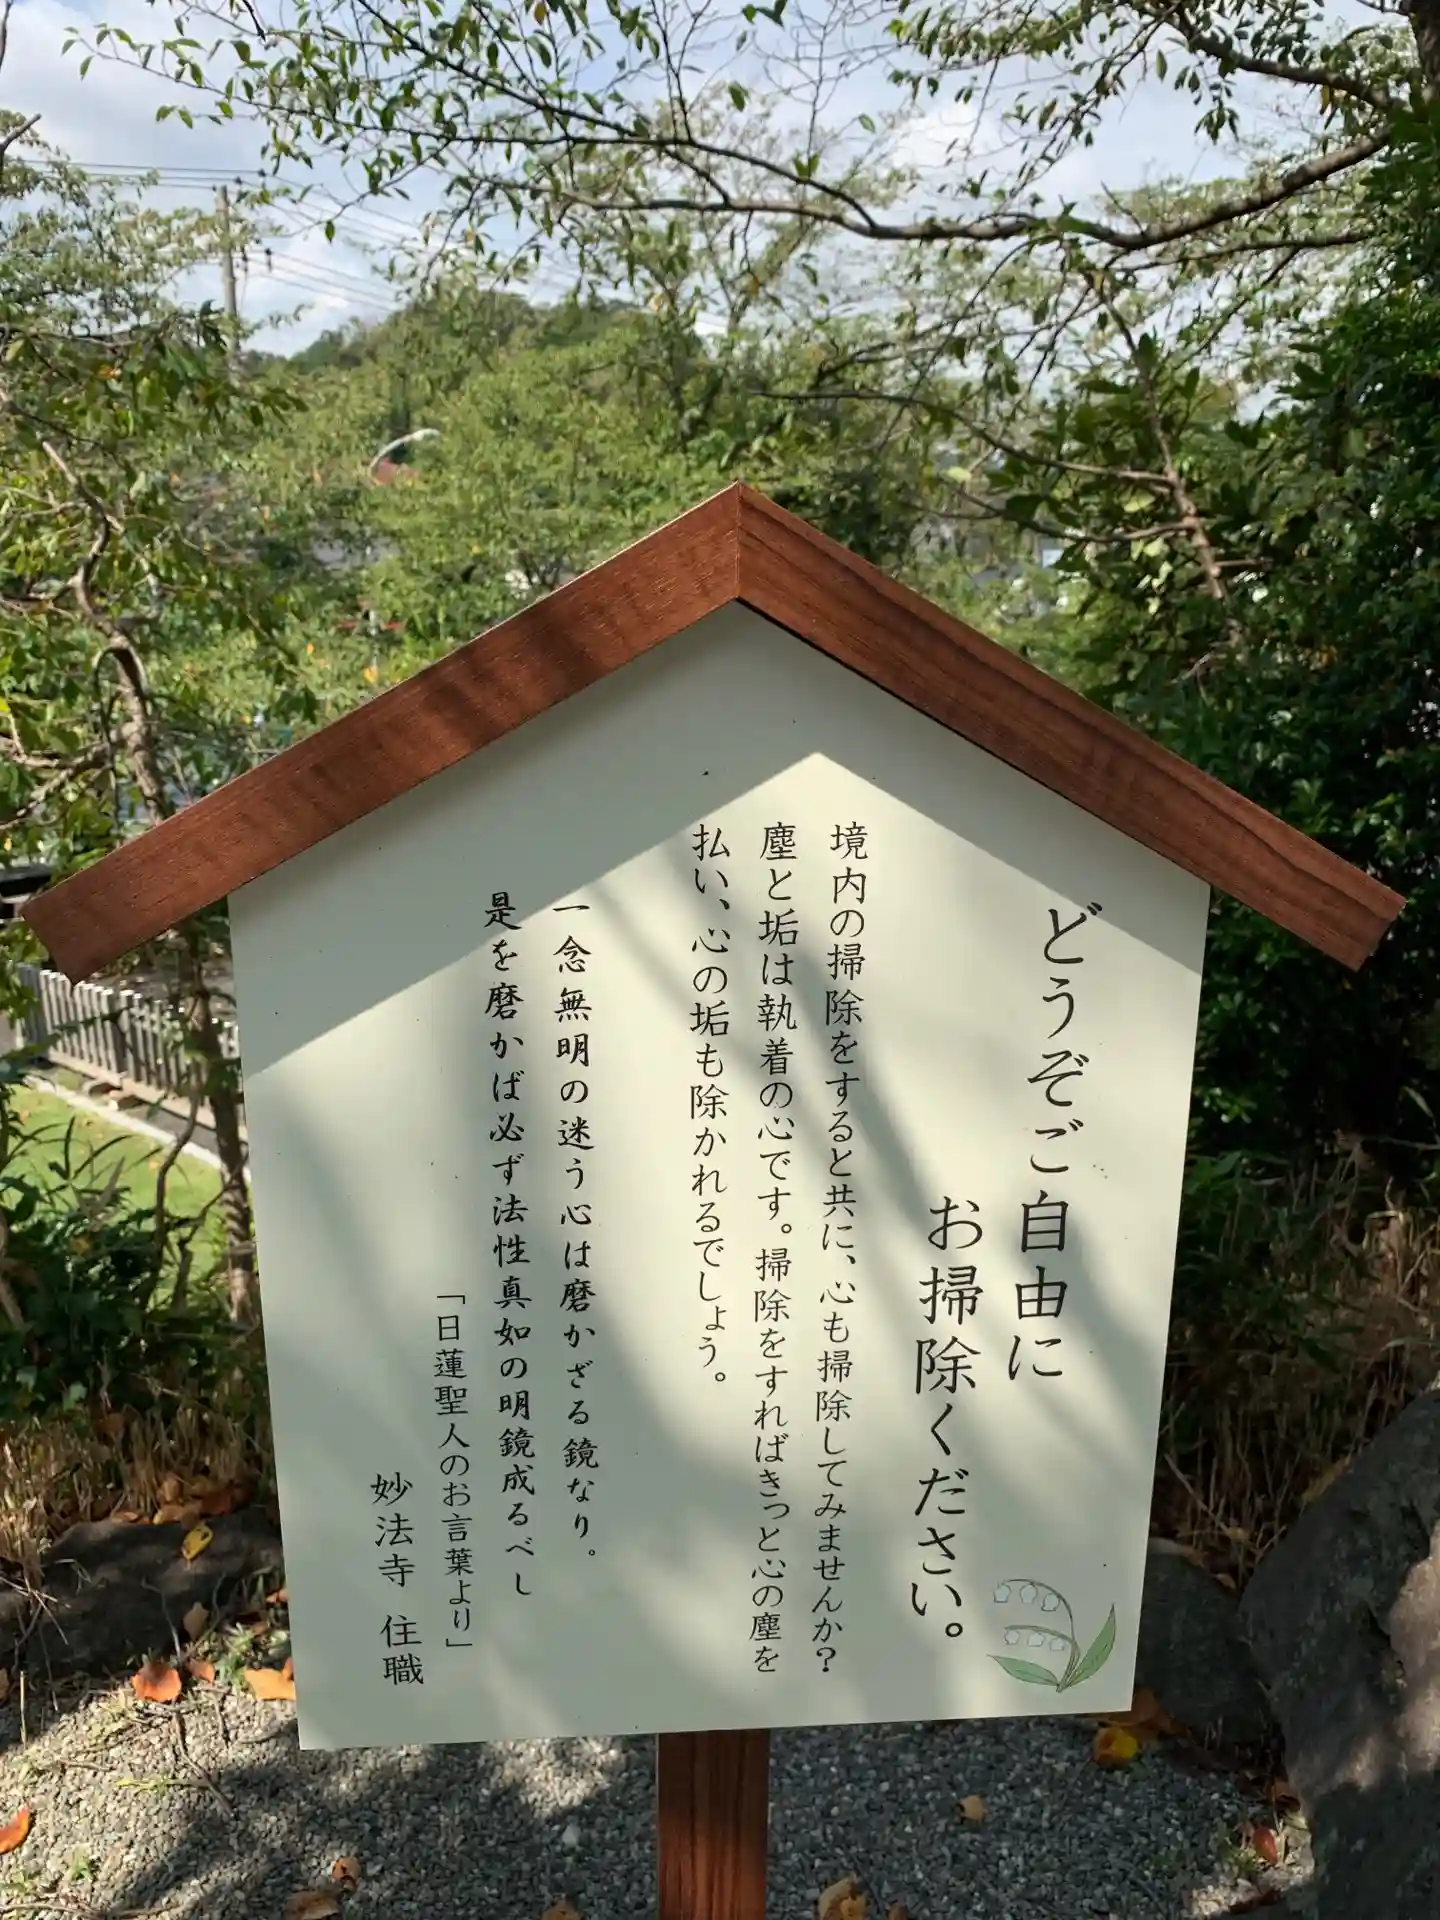 どうぞご自由に
お掃除ください。
境内の掃除をすると共に、心も掃除してみませんか?
塵と垢は執着の心です。掃除をすればきっと心の塵を
払い、心の垢も除かれるでしょう。
一念無明の迷う心は磨かざる鏡なり。
是を磨かば必ず法性真如の明鏡成るべし
「日蓮聖人のお言葉より」
妙法寺 住職